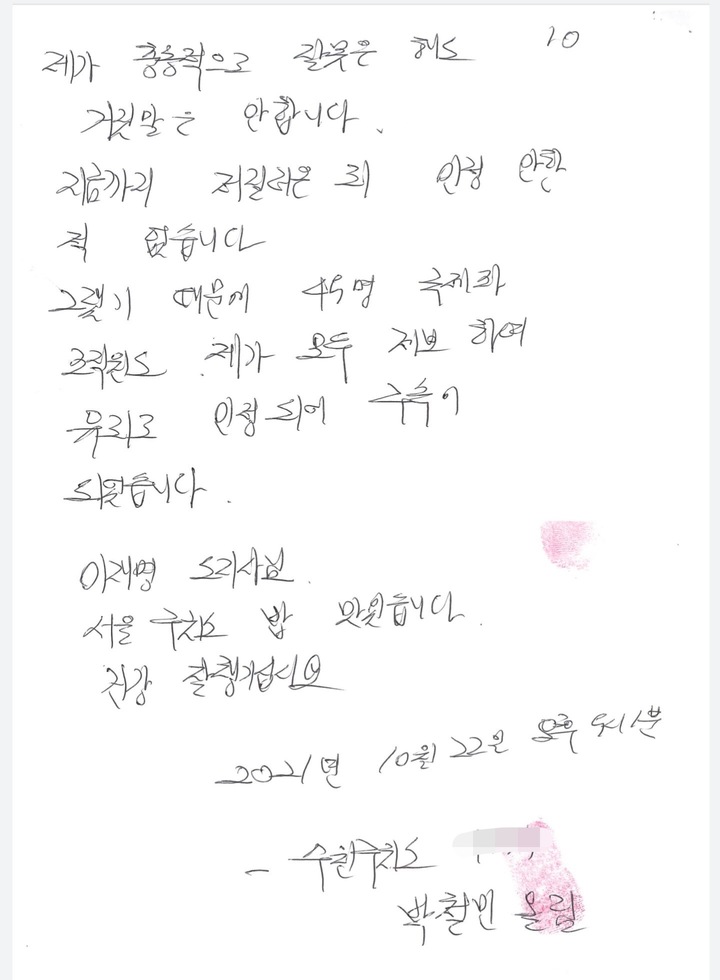 10
제가 충동적으로 잘못은 해도
거짓말은 안합니다.
지금까지 저질러온 죄 인정 안한
적 없습니다
그랬기 때문에 45명 국제파
조직원도 제가 모두 제보 하여
유죄로 인정되어 구속이
되었습니다.
이재명 도지사님.
서울 구치소 밥 맛있습니다.
건강 잘챙기십시요
2021년 10월 22일 오후 5시1분
- 수원구치소
박철민 올림